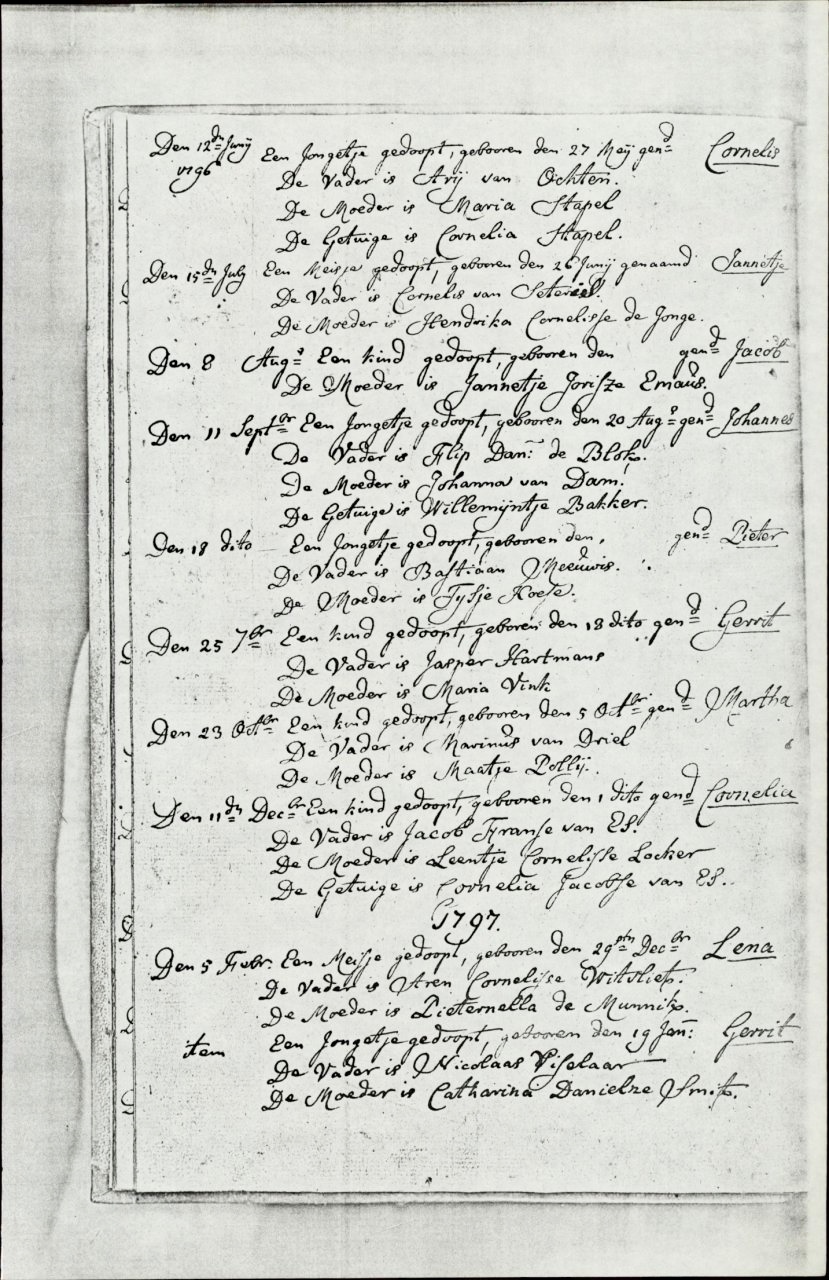 Den 12dn Junij Een Jongetje gedoopt, gebooren den 27 Meij gend Cornelis
1796
De Vader is Arij van Ochten.
De Moeder is Maria Stapel
De Getuige is Cornelia Stapel.
Den 15dn July Een Meisje gedoopt, gebooren den 26 Junij genaamd Jannetje
De Vader is Cornelis van Seteriel.
De Moeder is Hendrika Cornelisse de Jonge.
Den 8 Augs Een kind gedoopt, gebooren den gend Jacob
De Moeder is Jannetje Jorisze Emaus.
Den 11 Septbr Een Jongetje gedoopt, gebooren den 20 Augs gend Johannes
De Vader is Flip Dan: de Blok.
De Moeder is Johanna van Dam.
De Getuige is Willemijntje Bakker.
Den 18 dito Een Jongetje gedoopt, gebooren den, gend Pieter
De Vader is Bastiaan Meeuwis.
De Moeder is Tysje Hoese.
Den 25 7br Een kind gedoopt, geboren den 18 dito gend Gerrit
De Vader is Jasper Hartmans
De Moeder is Maria Vink
Den 23 Octbr Een kind gedoopt, gebooren den 5 Octbr gend Martha
De Vader is Marinus van Driel
De Moeder is Maatje Pollij.
Den 11dn Decbr Een kind gedoopt, gebooren den 1 dito gend Cornelia
De Vader is Jacob Franse van Es.
De Moeder is Leentje Cornelisse Locker
De Getuige is Cornelia Jacobse van Es.
1797.
Den 5 Febr. Een Meisje gedoopt, gebooren den 29sten Decbr Lena
De Vader is Aren Cornelisse Witvliet.
De Moeder is Pieternella de Munnik.
item Een Jongetje gedoopt, gebooren den 19 Jan: Gerrit
De Vader is Nicolaas Viselaar
De Moeder is Catharina Danielze Smit.